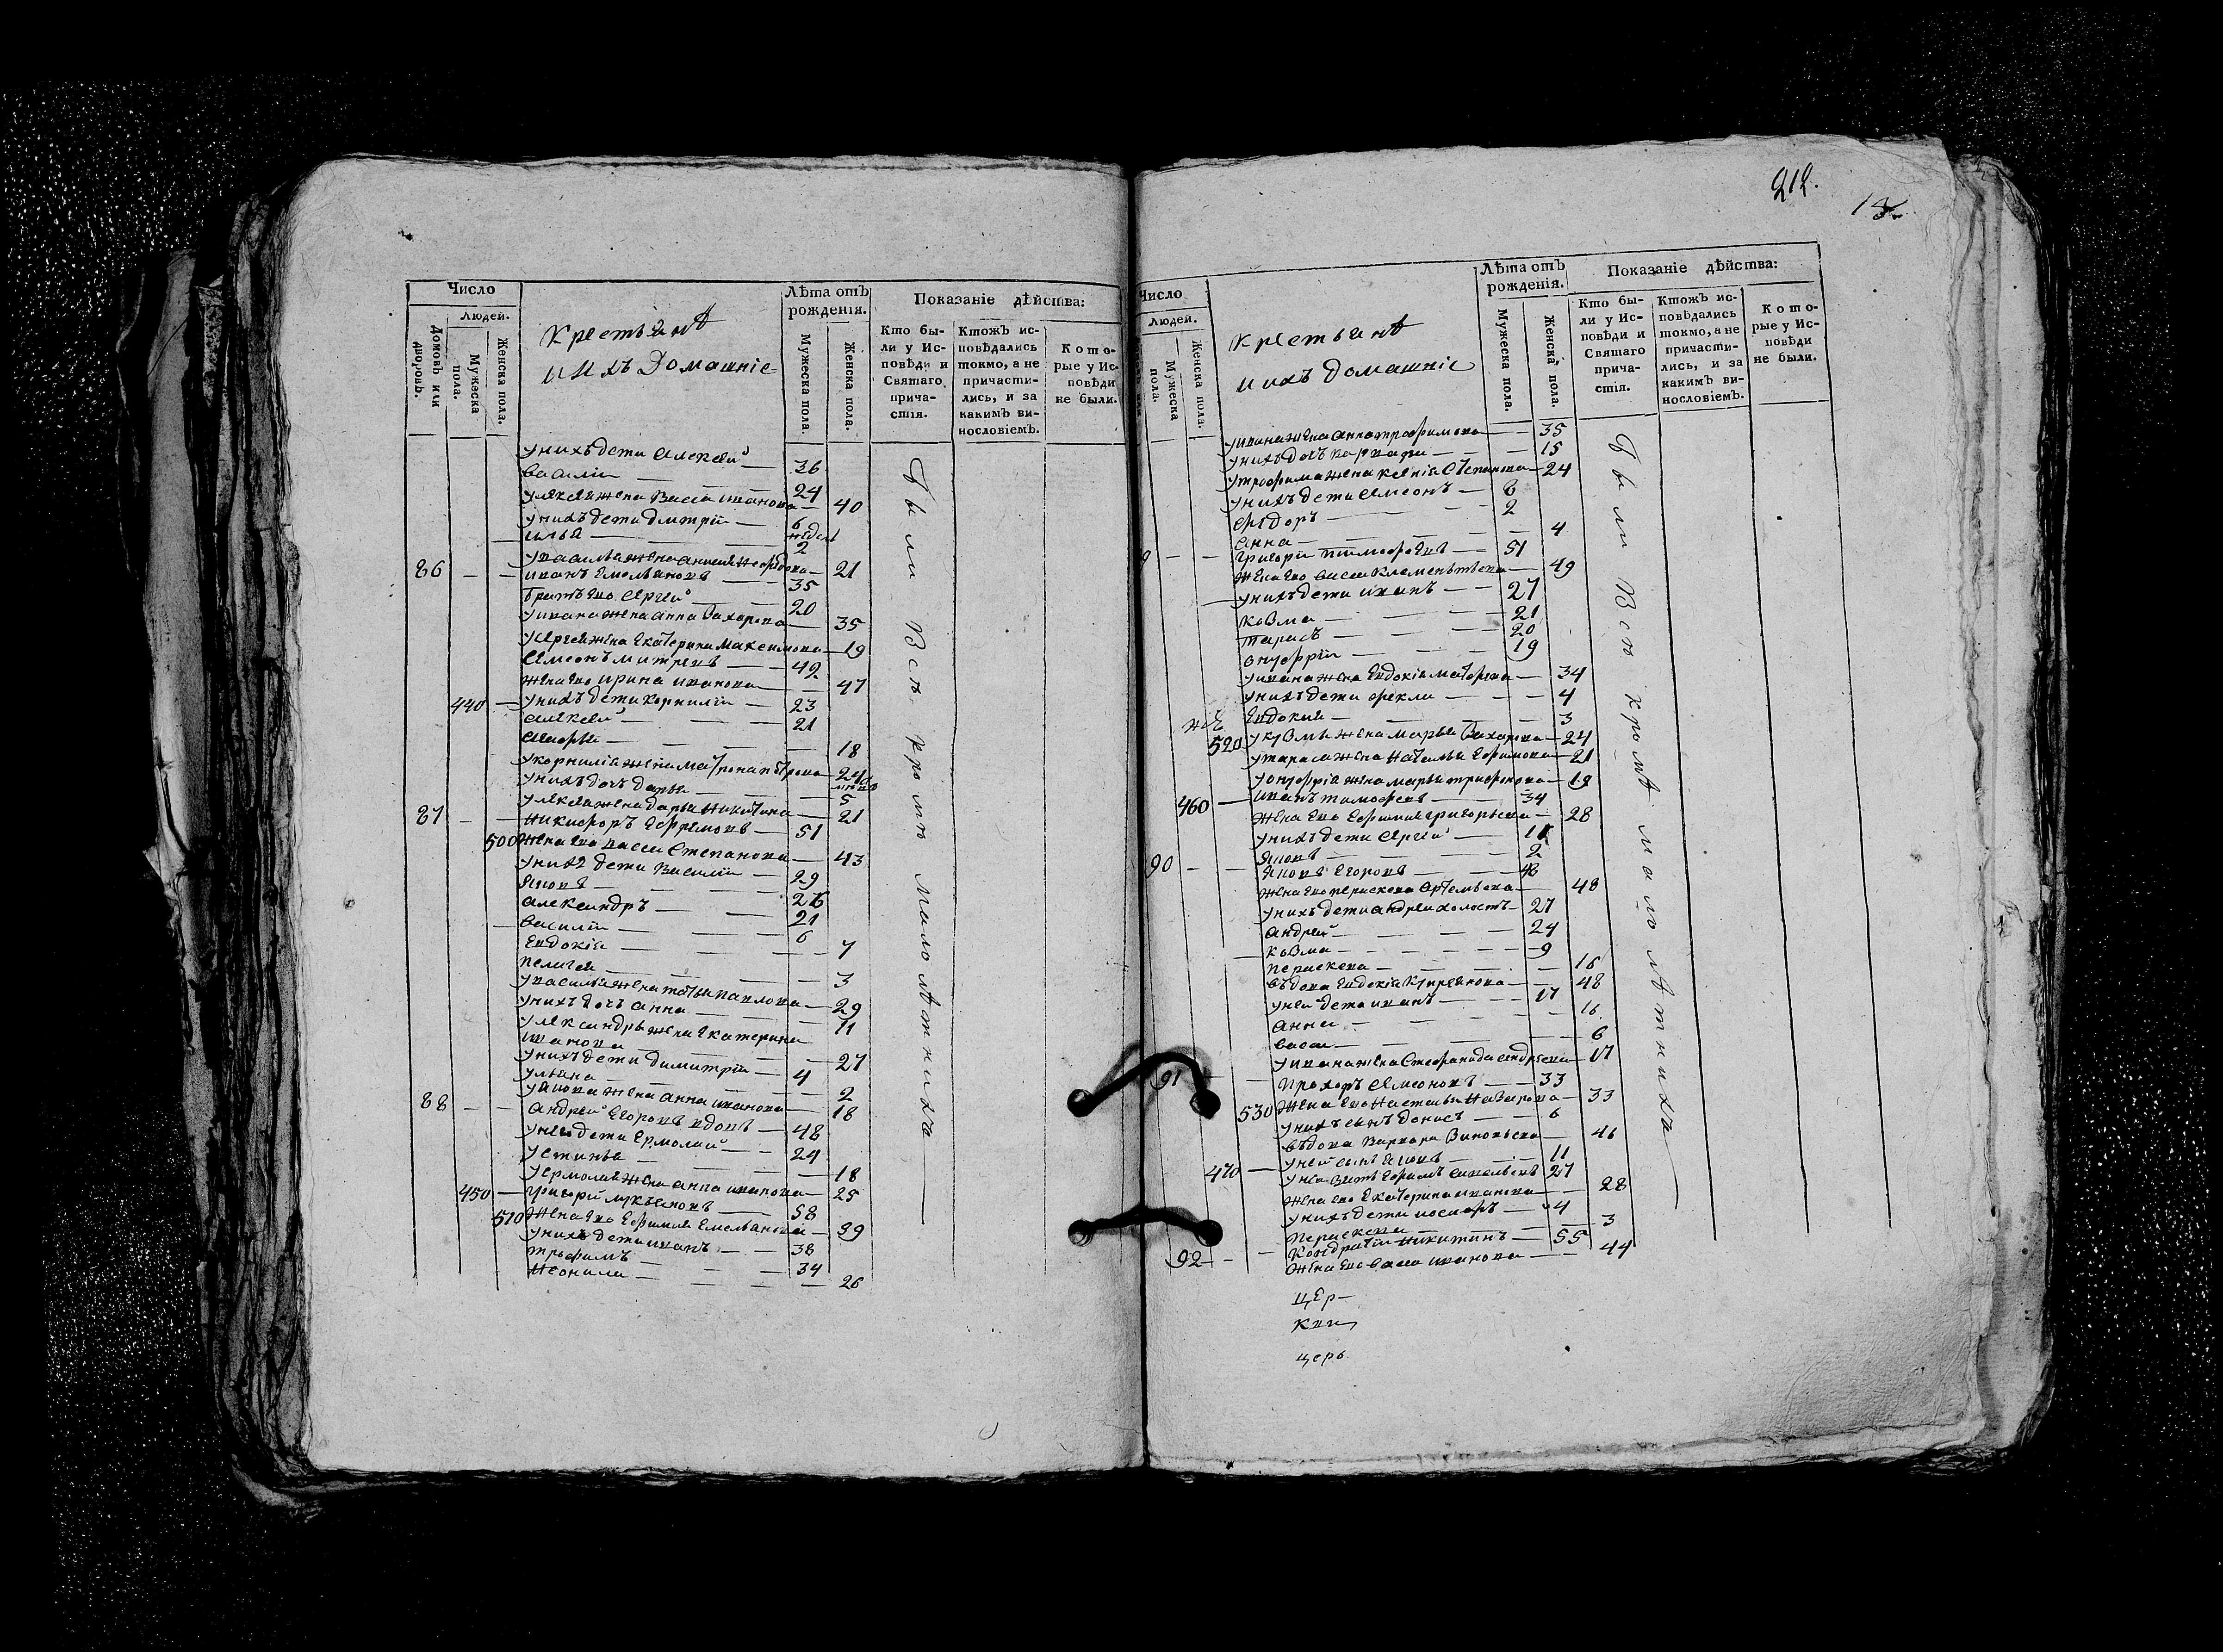 Число
Людей.
Домовъ или дворовъ.
Мужеска пола.
Женска пола.
Крестьянѣ
и ихъ Домашніе
Лѣта отъ рожденія.
Мужеска пола.
Женска пола.
Показаніе дѣйства:
Кто были у Исповѣди и Святаго причастія.
Ктожъ исповѣдались токмо, а не причастились, и за какимъ винословіемъ.
Которые у Исповѣди не были.
у нихъ дети Алексей
Василіи — 36
24
у Алексея жена Васса Иванова — 40
у нихъ дети Дмитрiи — 6
Илья — недел
2
21
86 — — Иванъ Емельяновъ — 35
братъ ево Сергей — 20
у Ивана жена Анна Захарова — 35
у Сергея жена Екатерина Максимова — 19
Симеонъ Митревъ — 42
жена ево Ирина Иванова — 47
440 — у нихъ дети Корнилiи — 23
Алексей — 21
Софья — 18
у Корнилiя жена Матрона Петрова — 24
у нихъ дочь Дарья — 5
у Алексея жена Дарья Никитина — 21
87 — — Никифоръ Ефремовъ — 51
500 жена ево Васса Степанова — 43
у нихъ дети Василiи — 29
Яковъ — 26
Александръ — 21
Василiи — 6
Евдокiя — 7
Пелагея — 3
у Василья жена Татьяна Павлова — 29
у нихъ дочь Анна — 11
у Александры жена Екатерина
Иванова — 27
у нихъ дети Димитрiи — 4
Ульяна — 2
у Якова жена Анна Иванова — 18
88 — — Андрей Егоровъ вдовъ — 48
у него дети Ермолай — 24
Устинья — 18
у Ермолая жена Анна Иванова — 25
450 — Григорiй Лукьяновъ — 58
510 жена ево Ефимия Емельянова — 39
у нихъ дети Иванъ — 38
Трофимъ — 34
Неонила — 26
Были Всѣ кромѣ малолѣтнихъ
212.
Число
Людей.
Мужеска пола.
Женска пола.
Крестьянѣ
и ихъ домашніе
Лѣта отъ рожденія.
Мужеска пола.
Женска пола.
Показаніе дѣйства:
Кто были у Исповѣди и Святаго причастія.
Ктожъ исповѣдались токмо, а не причастились, и за какимъ винословіемъ.
Которые у Исповѣди не были.
у Ивана жена Анна Трофимова — 35
у нихъ дочь Варвара — 15
у Трофима жена Ксения Степанова — 24
у нихъ дети Симеонъ — 6
Сидоръ — 2
Анна — 4
Григорiи Тимофеевъ — 51
жена ево Васса Клементьева — 49
у нихъ дети Иванъ — 27
Козма — 21
Тарасъ — 20
Онуфрiи — 19
у Ивана жена Евдокiя Матфеева — 34
у нихъ дети Фекла — 4
Евдокия — 3
520 у Кузмы жена Марья Захарова — 24
у Тараса жена Наталья Ефимова — 21
у Онуфрiя жена Марья Трифонова — 18
460 — Иванъ Тимофеевъ — 34
жена ево Ефимия Григорьева — 28
у нихъ дети Сергей — 11
Яковъ — 2
90 — — Яковъ Егоровъ — 46
жена ево Пераскева Артемьева — 48
у нихъ дети Андрей холостъ — 27
Андрей — 24
Козма — 9
Пераскева — 16
вдова Евдокiя Куприянова — 48
у ней дети Иванъ — 17
Анна — 16
Васса — 6
у Ивана жена Стефанида Андреева — 17
91 — Прохоръ Симеоновъ — 33
530 жена ево Настасья Назарова — 33
у нихъ сынъ Денисъ — 6
вдова Варвара — 46
470 — у ней сынъ Яковъ — 11
у нея зять Ефимъ Савельевъ 27
жена ево Екатерина Иванова — 28
у нихъ дети Иосифъ — 4
Пераскева — 3
92 — — Кондратiи Никитинъ — 55
жена ево Васса Иванова — 44
цер-
кви
церо
Были Всѣ кромѣ малолѣтнихъ